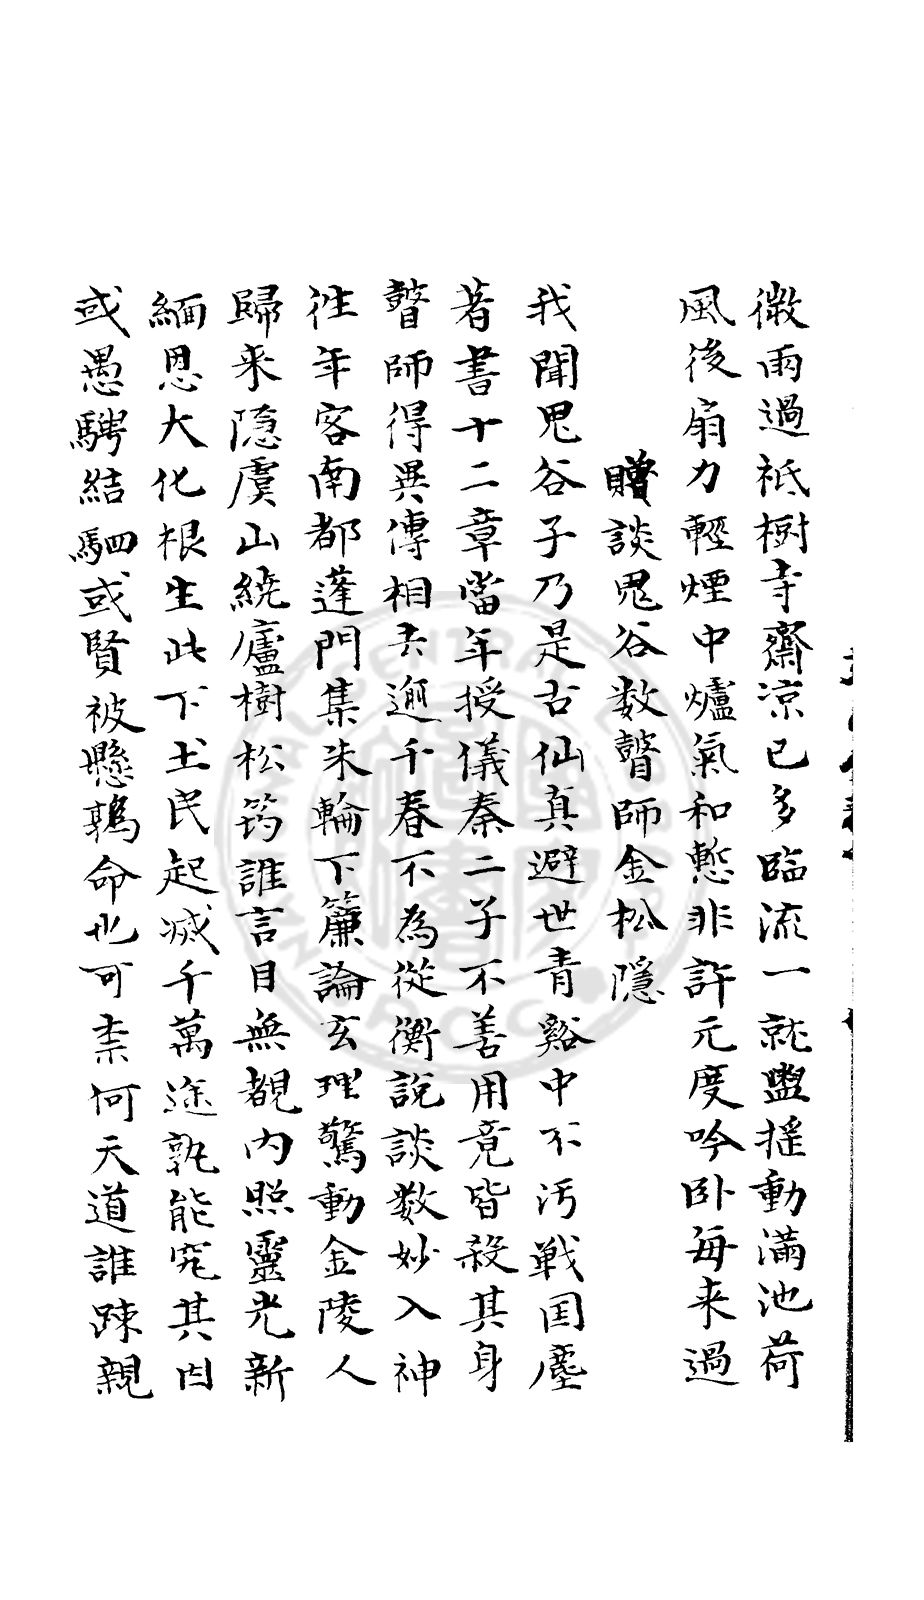 微雨過祗樹寺齋凉已多臨流一就盥揺動滿池荷
風後扇力輕煙中爐氣和慙非許元度吟卧每来過
贈談鬼谷数瞽師金松隱
我聞鬼谷子乃是古仙真避世青谿中不污戦囯塵
著書十二章當年授儀秦二子不善用竟皆殺其身
瞽師得異傳相去逈千春不為従衡說談数妙入神
往年客南都蓬門集朱輪下簾論玄理驚動金陵人
歸来隐虞山繞廬樹松筠誰言目無覩内照靈光新
緬思大化根生此下土民起滅千萬途孰能究其因
或愚騁結駟或賢被懸鶉命也可柰何天道誰踈親